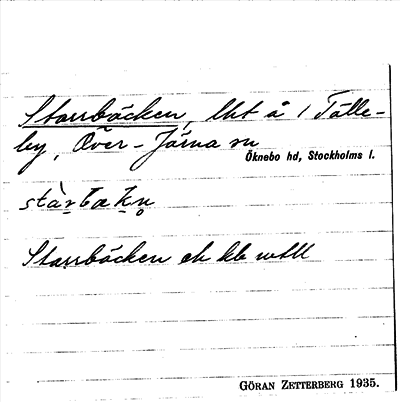 Starrbäcken, lht å 1 Tälle-
by, Över-Järna sn
Öknebo hd, Stockholms l.
stàrbäkn̥
Starrbäcken ek
GÖRAN ZETTERBERG 1935.